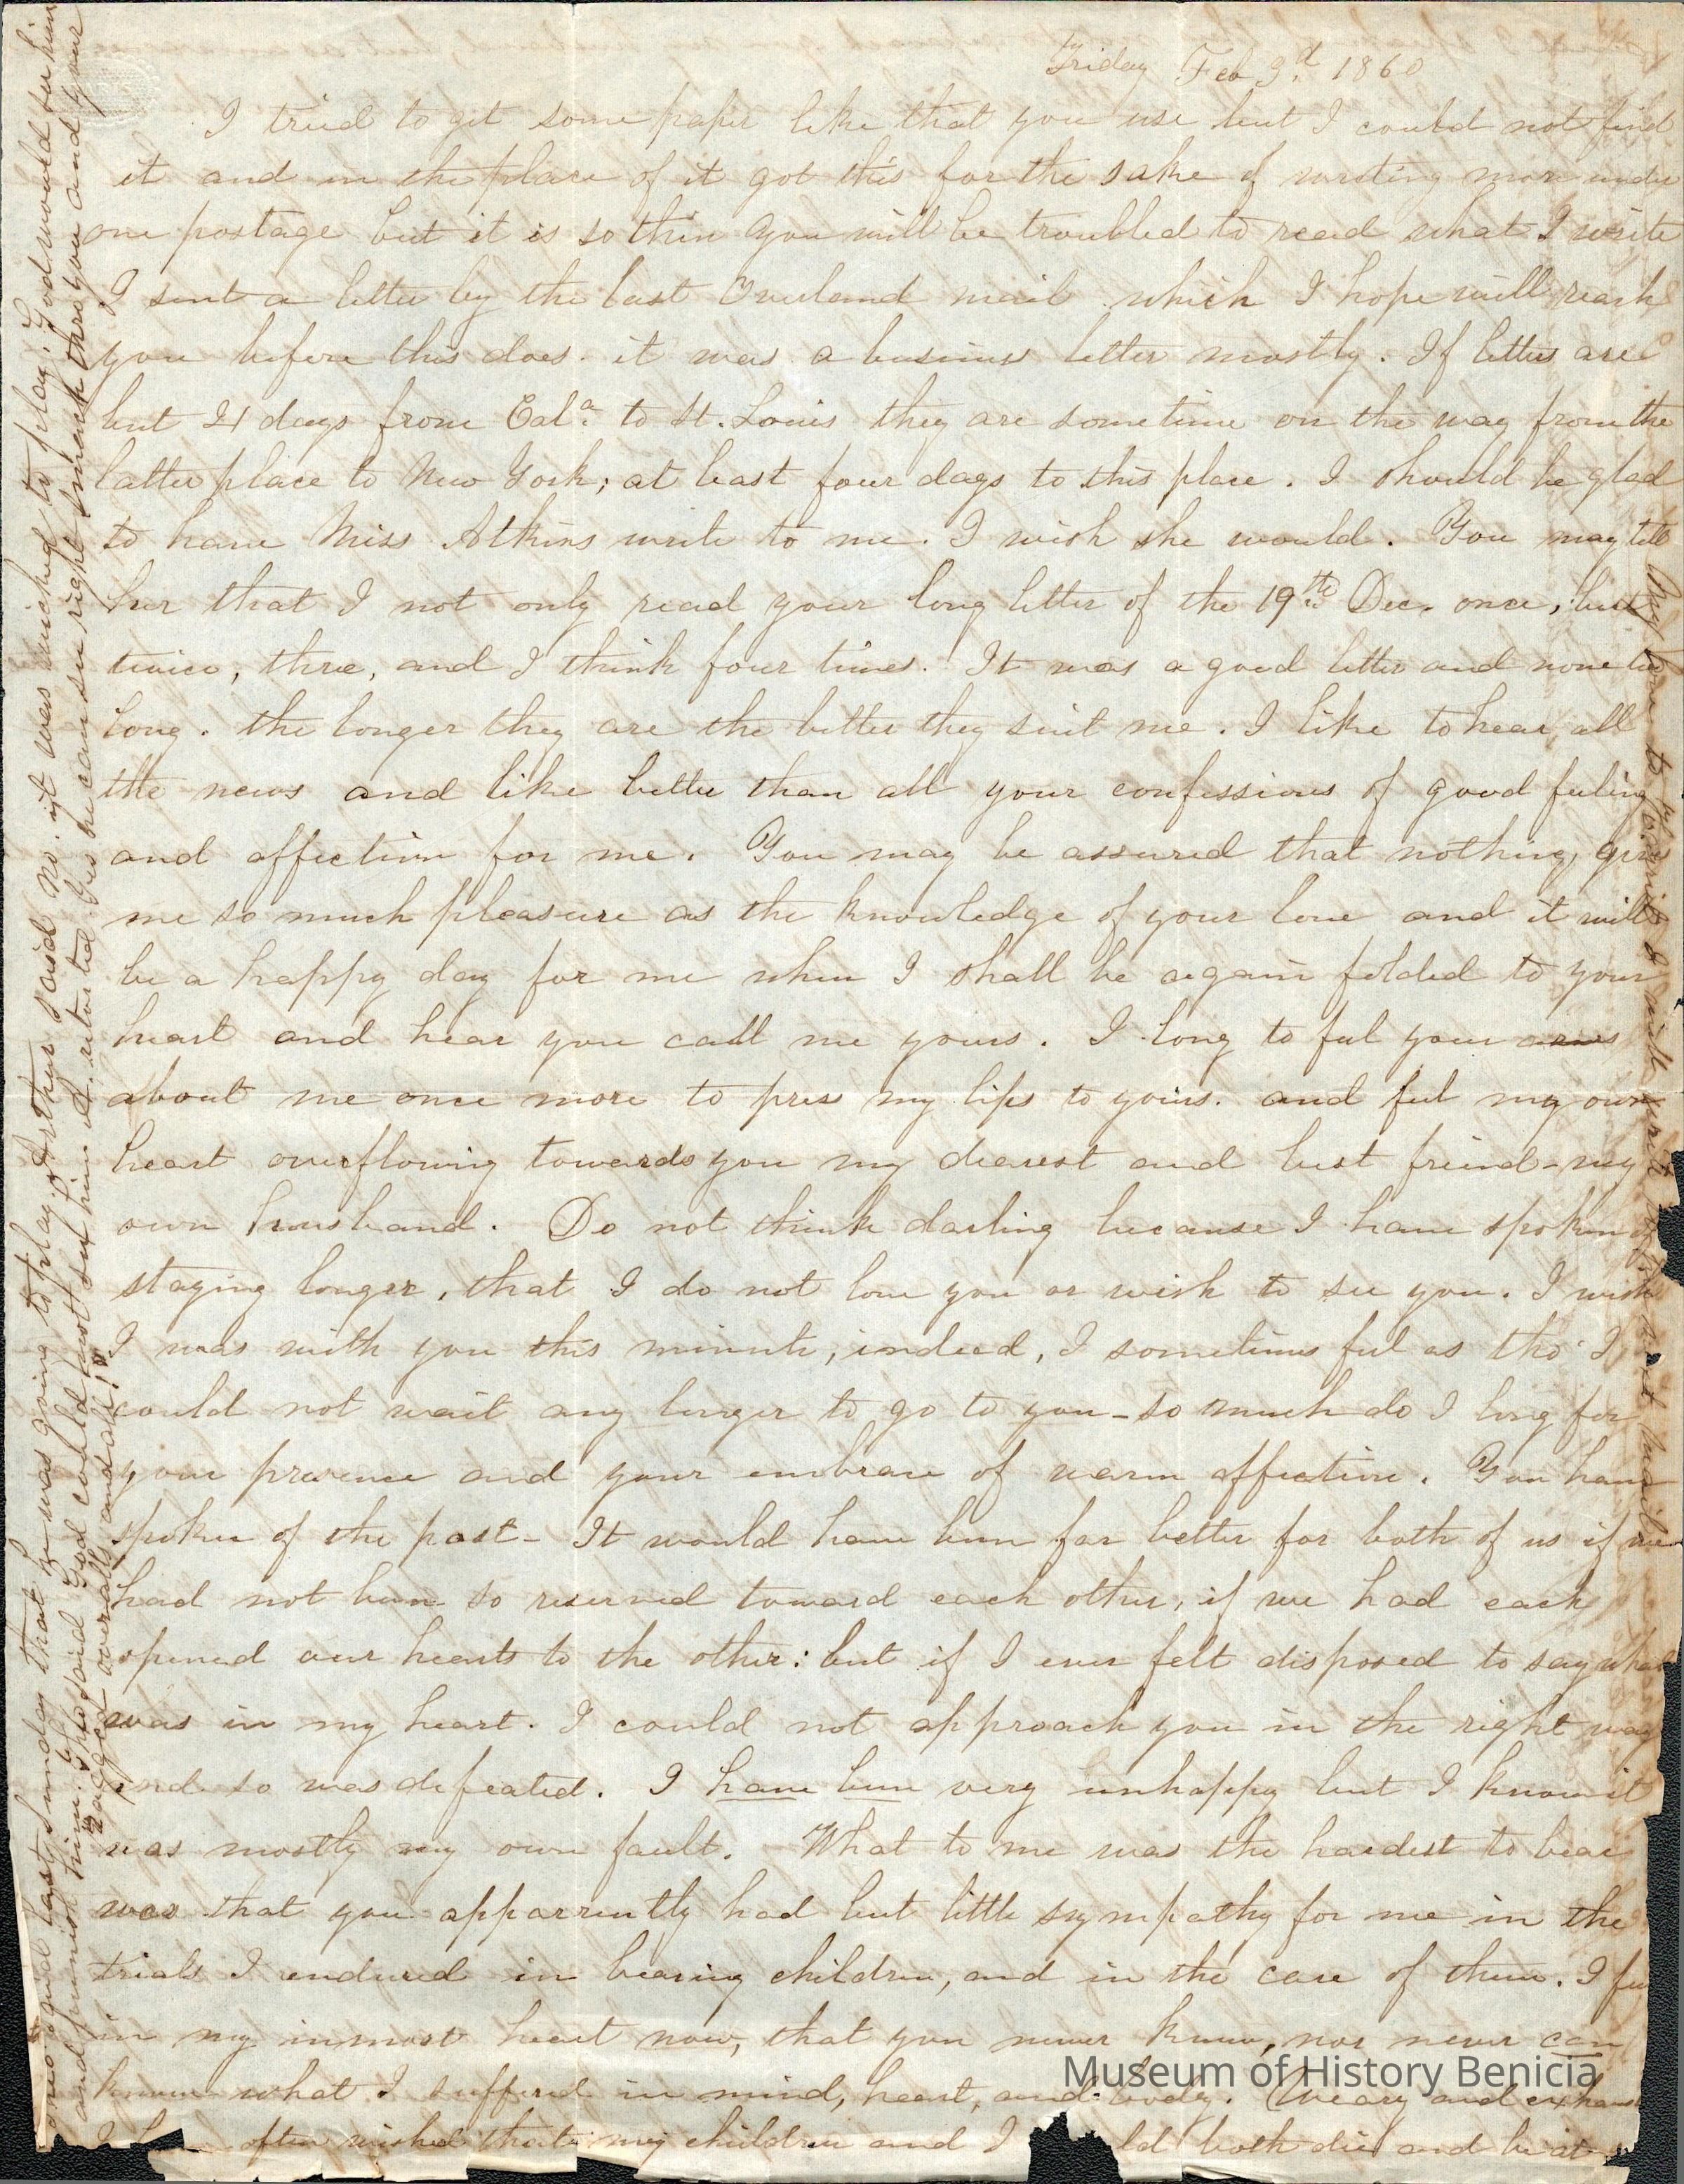 Friday Feb 3d. 1860
I tried to get some paper like that you use but I could not find
it and in the place of it got this for the sake of writing more under
one postage but it is so thin you will be troubled to read what I write
I sent a letter by the last Overland mail which I hope will reach
you before this does. it was a business letter mostly. If letters are
but 21 days from Cala. to St. Louis they are sometime on the way from the
latter place to New York; at least four days to this place. I should be glad
to have Miss Atkins write to me. I wish she would. You may tell
her that I not only read your long letter of the 19th Dec. once, but
twice, three, and I think four times. It was a good letter and none too
long. the longer they are the better they suit me. I like to hear all
the news and like better than all your confessions of good feeling
and affection for me. You may be assured that nothing gives
me so much pleasure as the knowledge of your love and it will
be a happy day for me when I shall be again folded to your
heart and hear you call me yours. I long to feel your arms
about me once more to press my lips to yours. and feel my own
heart overflowing towards you my dearest and best friend - my
own husband. Do not think darling because I have spoken of
staying longer, that I do not love you or wish to see you. I wish
I was with you this minute, indeed, I sometimes feel as tho' I
could not wait any longer to go to you - so much do I long for
your presence and your embrace of warm affection. You have
spoken of the past - It would have been far better for both of us if we
had not been so reserved toward each other, if we had each
opened our hearts to the other: but if I ever felt disposed to say what
was in my heart. I could not approach you in the right way
and so was defeated. I have been very unhappy but I know it
was mostly my own fault. What to me was the hardest to bear
was that you apparrently had but little sympathy for me in the
trials I endured in bearing children, and in the care of them. I feel
in my inmost heart now, that you never knew, nor never can
know what I suffered in mind, heart, and body. Weary and exhaus
I have often wished that my children and I ld both die and be at
My love to Maria I wish write by the next mail
last Sunday that he was going to play. Arthur said no. it was wicked to play. God would see him
and punish him. Ipo said God could not see him. A. retorted. Yes he can see right smack thro you and your
biggest overalls and all!"
Museum of History Benicia